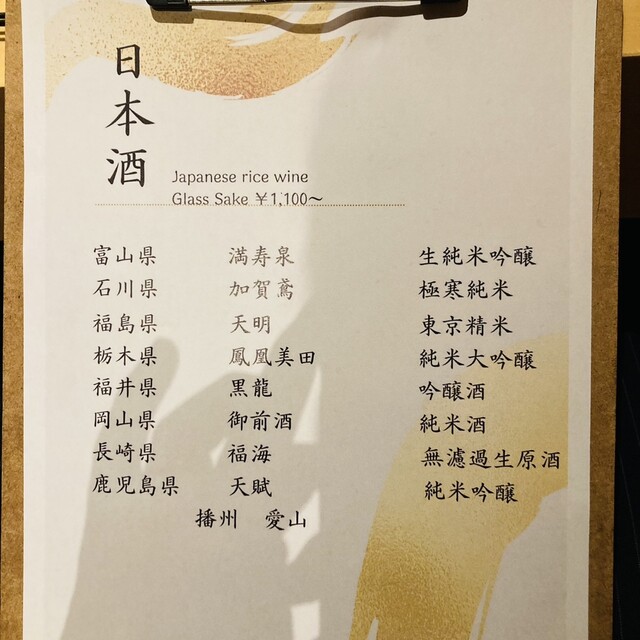 日本酒
Japanese rice wine
Glass Sake ￥1,100～
富山県 満寿泉 生純米吟醸
石川県 加賀鳶 極寒純米
福島県 天明 東京精米
栃木県 鳳凰美田 純米大吟醸
福井県 黒龍 吟醸酒
岡山県 御前酒 純米酒
長崎県 福海 無濾過生原酒
鹿児島県 天賦 純米吟醸
播州 愛山